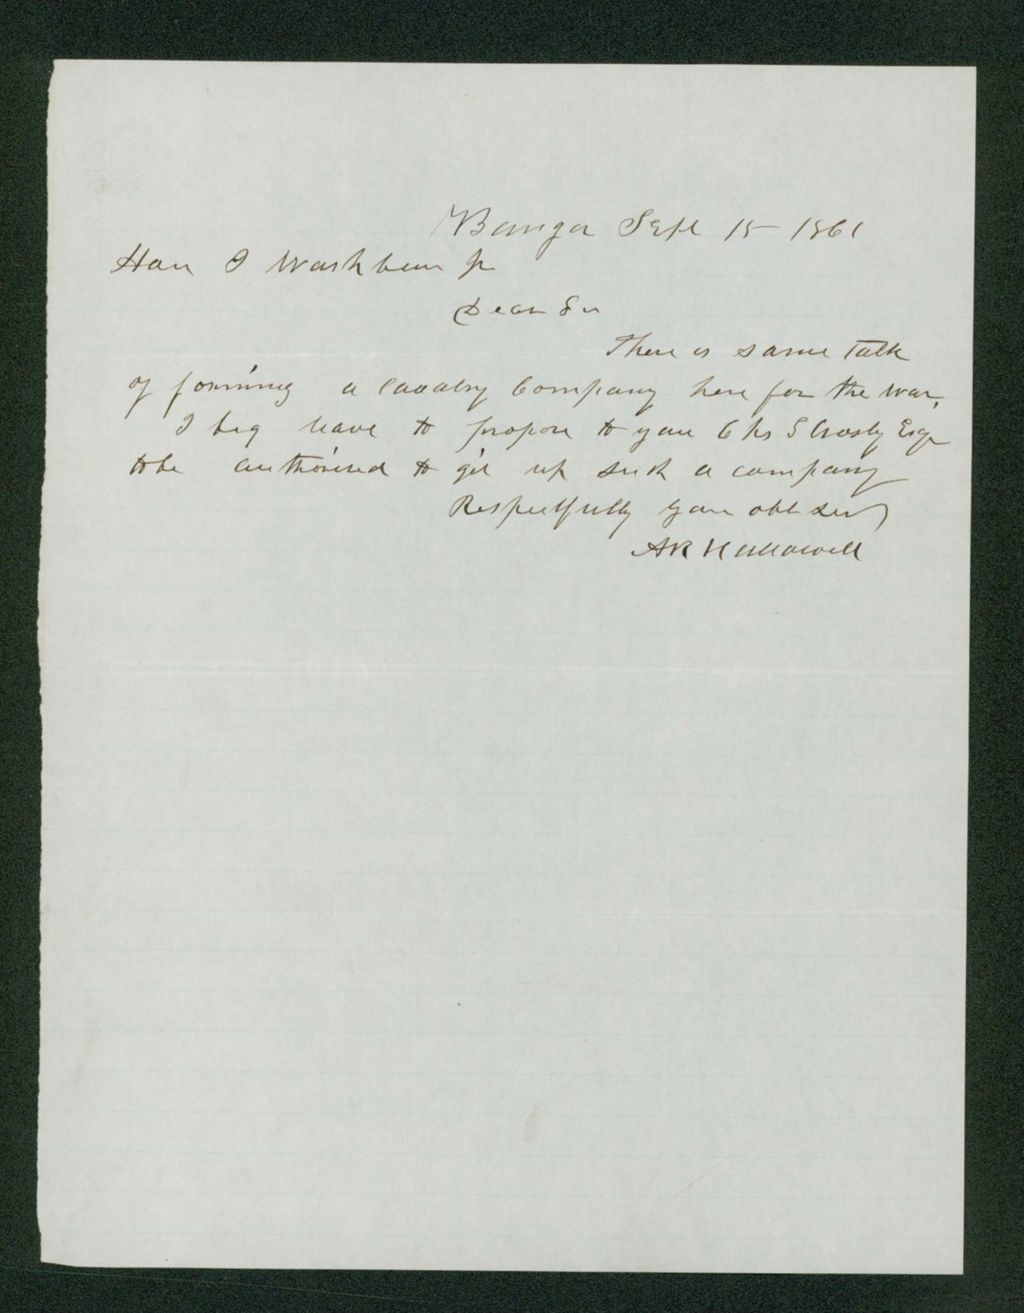 Bangor Sept 15 1861
Hon I Washburn Jr
Dear Sir
There is some talk
of forming a Cavalry Company here for the war,
I beg leave to propose to you Chs S Crosby Esqr
to be authorised to get up such a company
Respectfully your obt servt
A R Hallowell